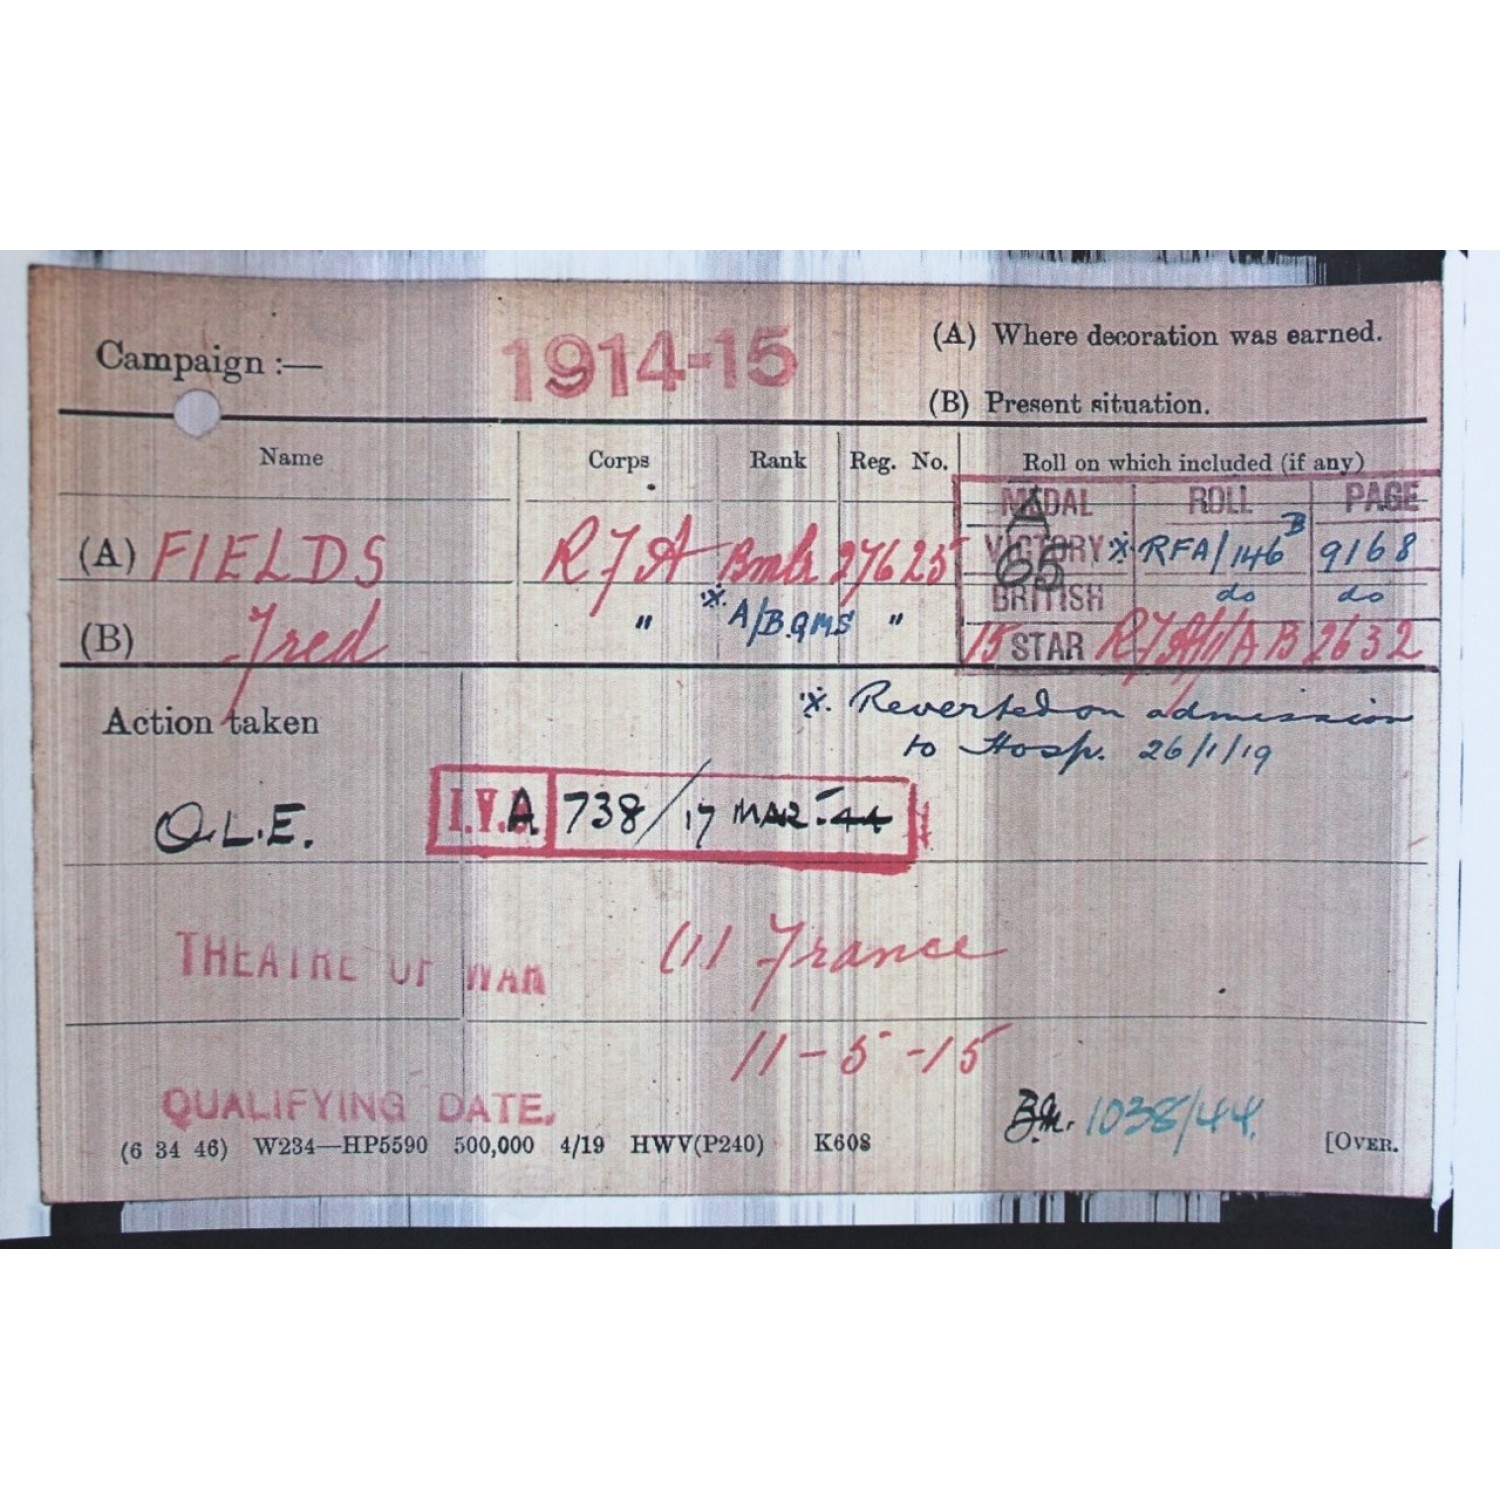 Campaign :— 1914-15 (A) Where decoration was earned.
(B) Present situation.
Name Corps Rank Reg. No. Roll on which included (if any)
MEDAL ROLL PAGE
A
65
(A) FIELDS R F A Bmbr 27625 VICTORY ※ RFA/146B 9168
BRITISH do do
(B) Fred " ※ A/BQMS " 15 STAR 2632
Action taken ※. Reverted on admission
to Hosp. 26/1/19
Q.L.E. I.V. A 738/17 MAR 44
THEATRE OF WAR (1) France
11-5-15
QUALIFYING DATE, 1038/44.
(6 34 46) W234—HP5590 500,000 4/19 HWV(P240) K608 [OVER.